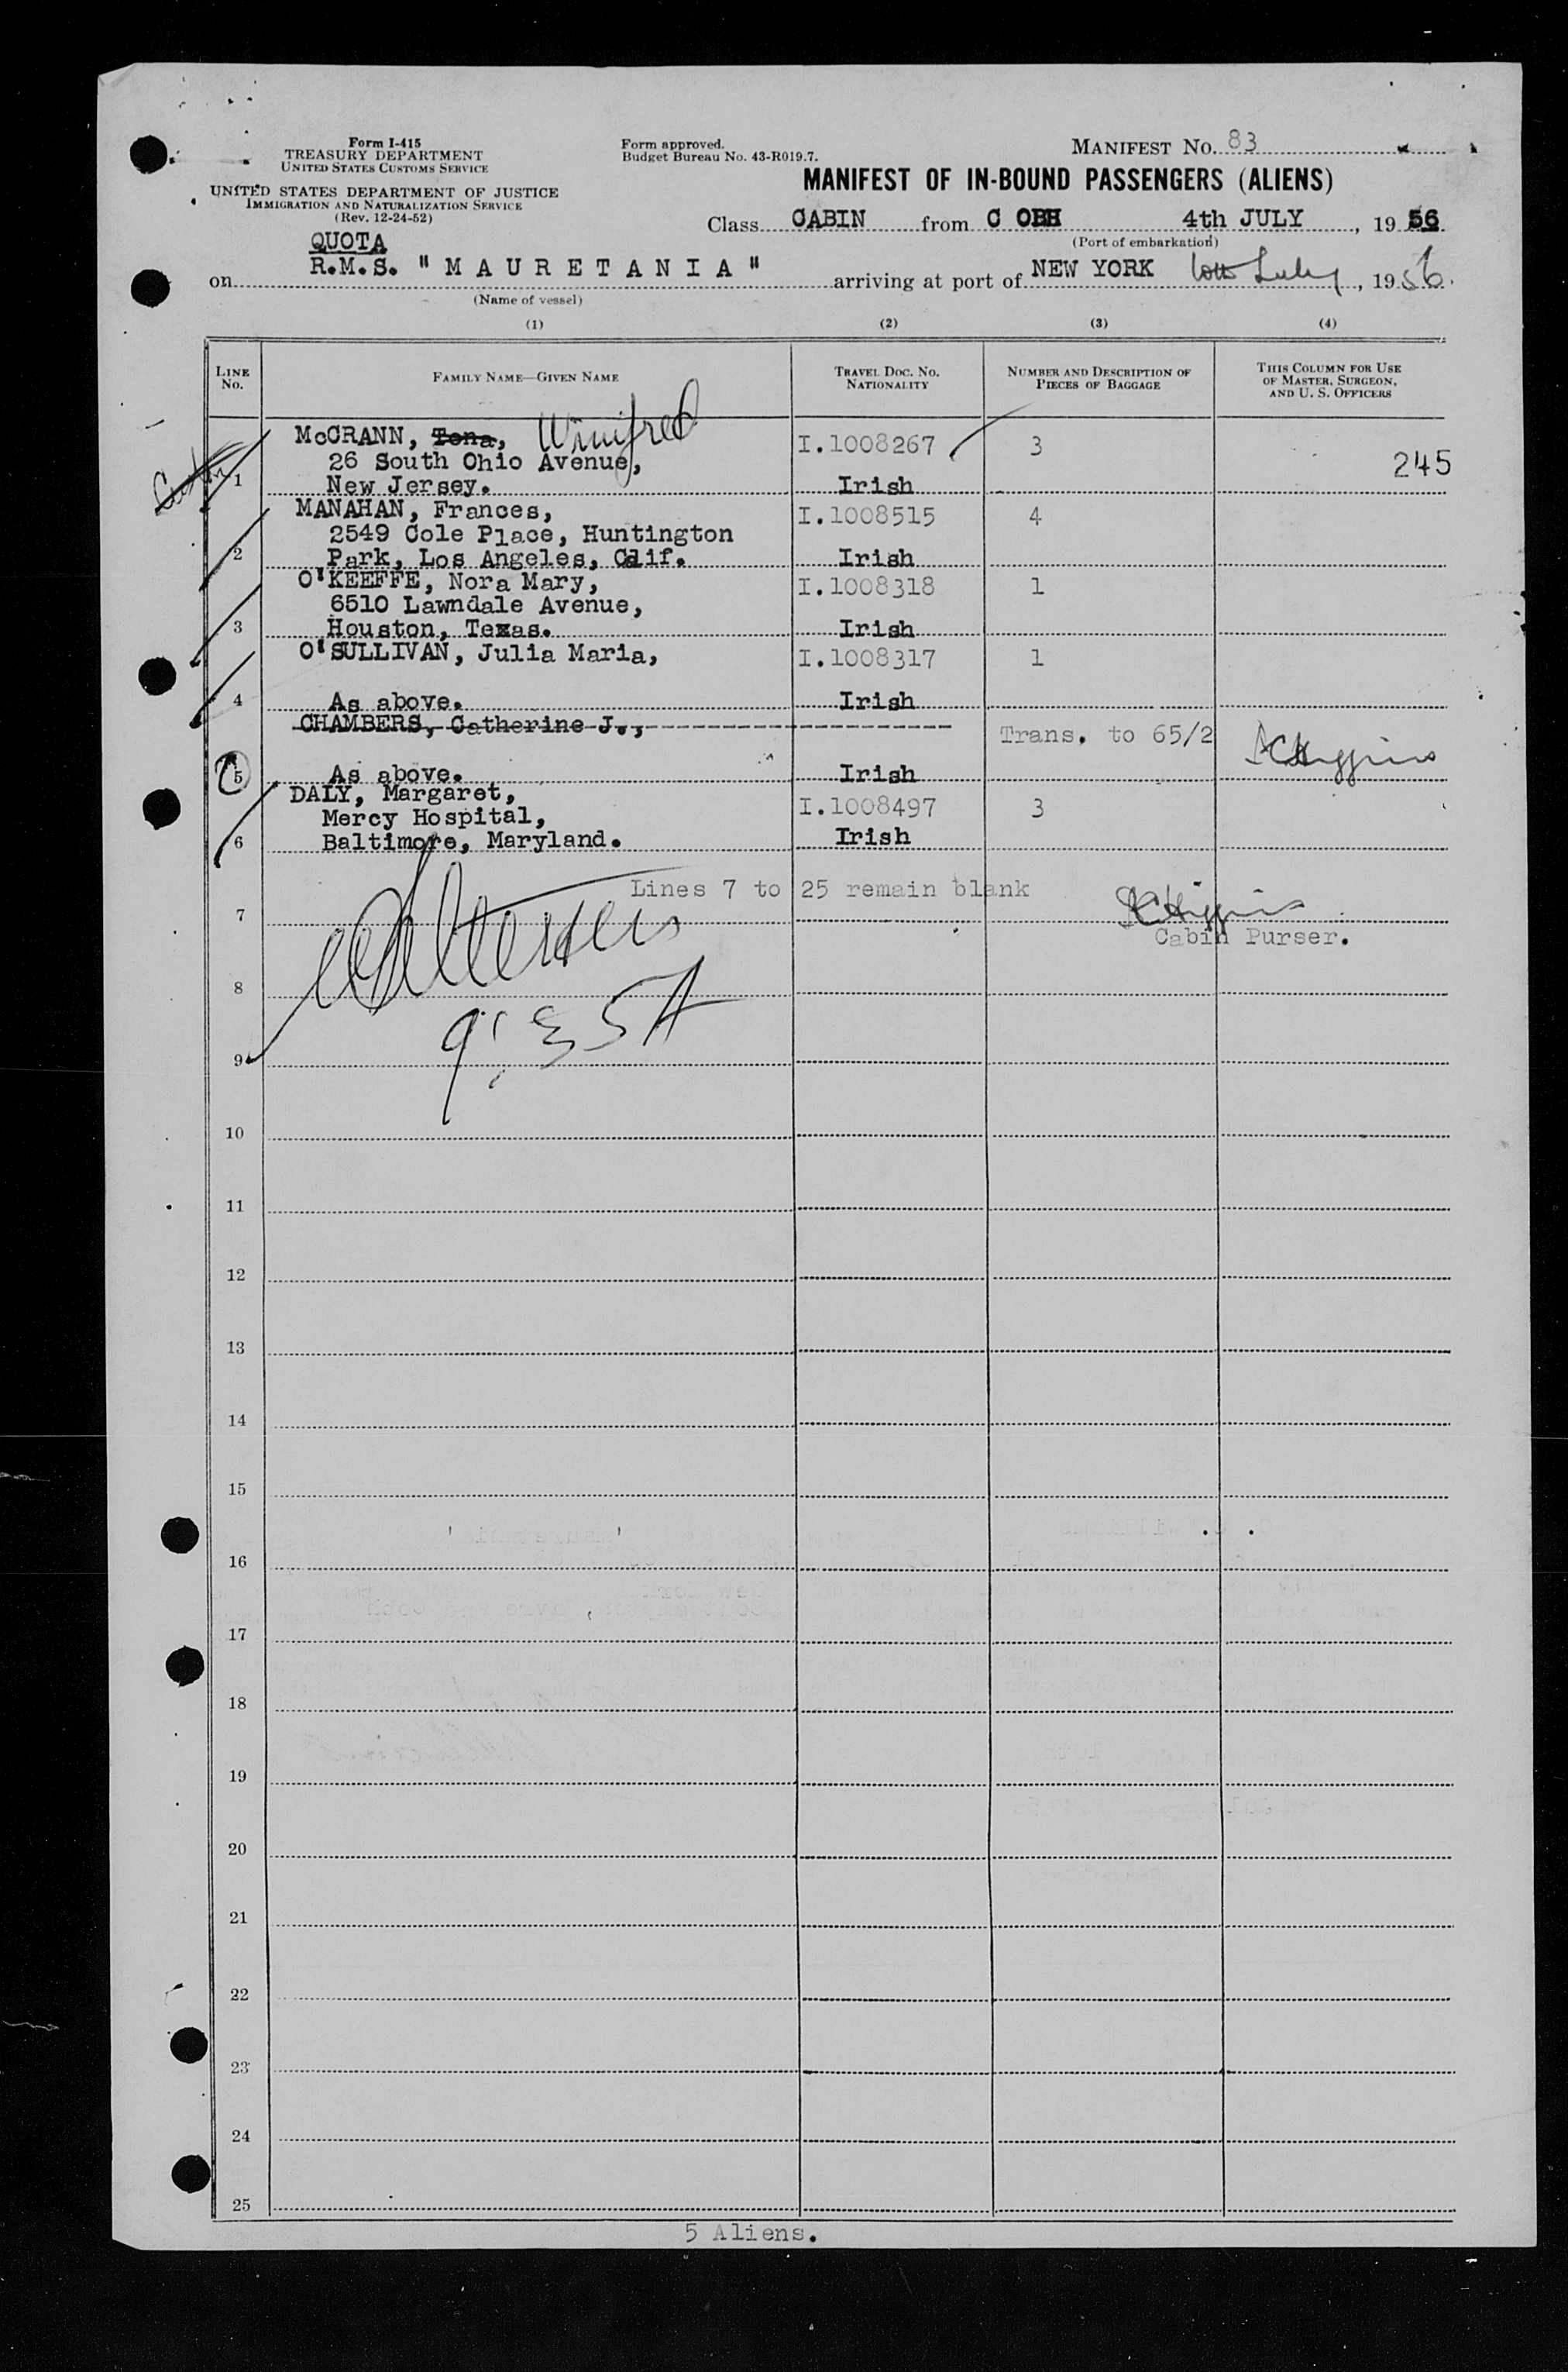 Form I-415
TREASURY DEPARTMENT
UNITED STATES CUSTOMS SERVICE
UNITED STATES DEPARTMENT OF JUSTICE
IMMIGRATION AND NATURALIZATION SERVICE
(Rev. 12-24-52)
Form approved.
Budget Bureau No. 43-R019.7.
MANIFEST No. 83
MANIFEST OF IN-BOUND PASSENGERS (ALIENS)
Class CABIN from C OBH 4th JULY, 19 56
(Port of embarkation)
QUOTA
on R.M.S. "MAURETANIA" arriving at port of NEW YORK July, 1956.
(Name of vessel)
(1) (2) (3) (4)
LINE No. FAMILY NAME—GIVEN NAME TRAVEL DOC. No. NATIONALITY NUMBER AND DESCRIPTION OF PIECES OF BAGGAGE THIS COLUMN FOR USE OF MASTER, SURGEON, AND U. S. OFFICERS
McCRANN, Tona, Winifred I.1008267 3
26 South Ohio Avenue, 245
1 New Jersey. Irish
MANAHAN, Frances, I.1008515 4
2549 Cole Place, Huntington
2 Park, Los Angeles, Calif. Irish
O'KEEFFE, Nora Mary, I.1008318 1
6510 Lawndale Avenue,
3 Houston, Texas. Irish
O'SULLIVAN, Julia Maria, I.1008317 1
4 As above. Irish
CHAMBERS, Catherine J.,
Trans. to 65/2 Higgins
5 As above. Irish
DALY, Margaret, I.1008497 3
Mercy Hospital,
6 Baltimore, Maryland. Irish
Lines 7 to 25 remain blank Higgins
7
Cabin Purser.
8
9:35A
9
10
11
12
13
14
15
16
17
18
19
20
21
22
23
24
25
5 Aliens.